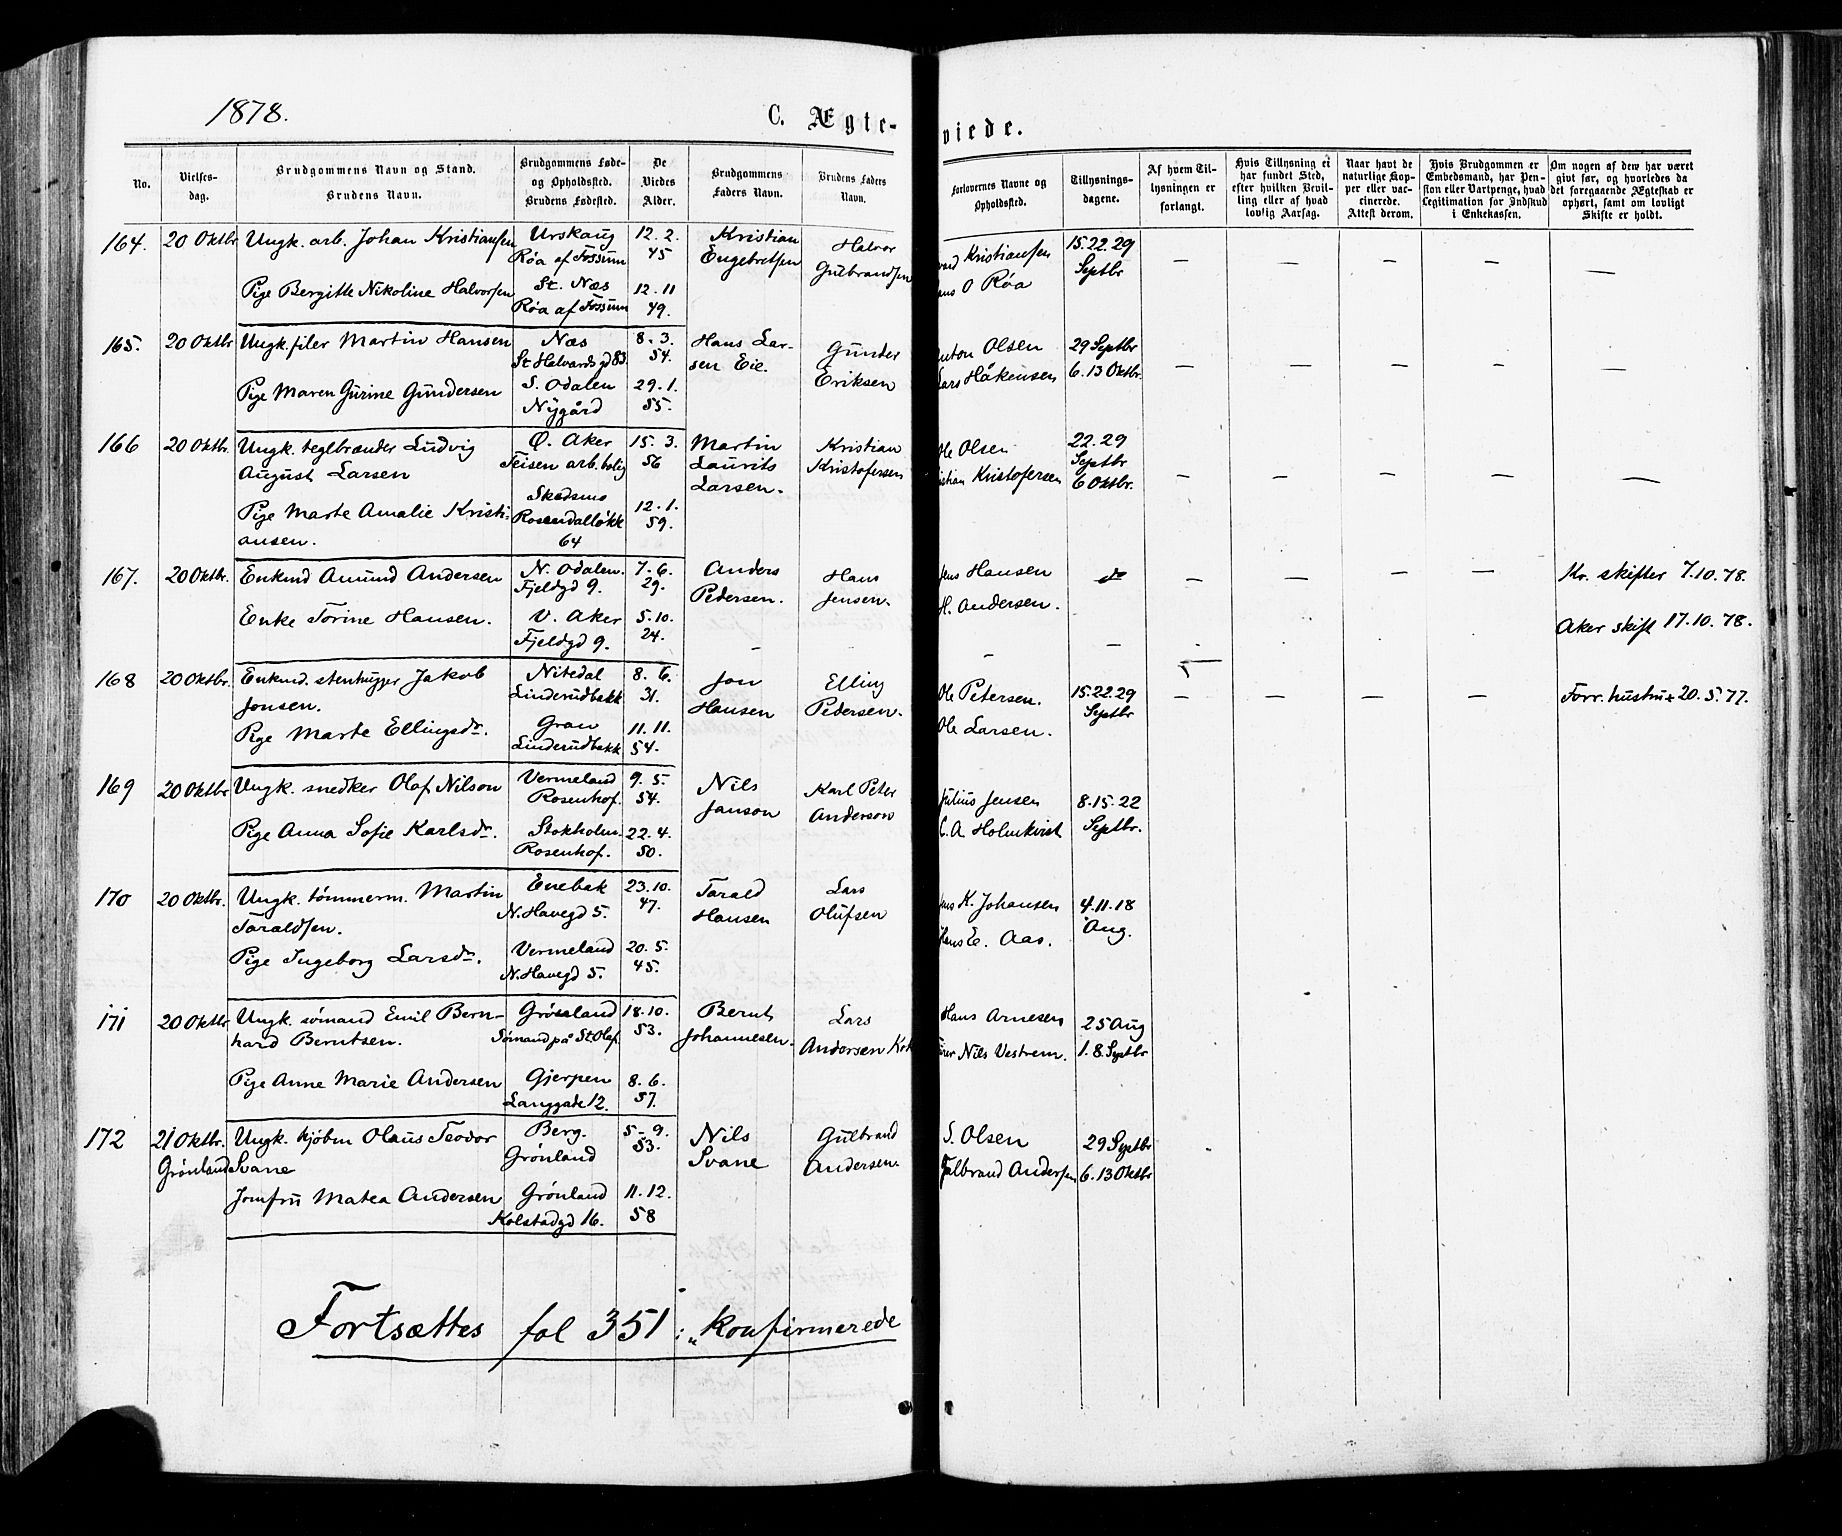 1878.
C. Ægte-
viede.
No.
Vielses-
dag.
Brudgommens Navn og Stand.
Brudens Navn.
Brudgommens Føde-
og Opholdsted.
Brudens Fødested.
De
Viedes
Alder.
Brudgommens
Faders Navn.
Brudens Faders
Navn.
Forlovernes Navne og
Opholdsted.
Tillysnings-
dagene.
Af hvem Til-
lysningen er
forlangt.
Hvis Tillysning ei
har fundet Sted,
efter hvilken Bevil-
ling eller af hvad
lovlig Aarsag.
Naar havt de
naturlige Kop-
per eller vac-
cinerede.
Attest derom.
Hvis Brudgommen er
Embedsmand, har Pen-
sion eller Vartpenge, hvad
Legitimation for Indskud
i Enkekassen.
Om nogen af dem har været
givt før, og hvorledes da
det foregaaende Ægteskab er
ophørt, samt om lovligt
Skifte er holdt.
164.
20 Oktbr
Ungk. arb. Johan Kristiansen
Pige Bergitte Nikoline Halvorsen
Urskaug
Røa af Fossum
St. Næs
Røa af Fossum
12. 2.
45
12. 11
49.
Kristian
Engebretsen
Halvor
Gulbrandsen
Kristiansen
O Røa
15. 22. 29
Septbr
— — — — —
165.
20 Oktbr
Ungk. filer Martin Hansen
Pige Maren Gurine Gundersen
Næs
St Halvards gd 83
S. Odalen
Nygård
8. 3.
54.
29. 1.
55.
Hans Lar-
sen Eie.
Gunder
Eriksen
Anton Olsen
Lars Håkensen
29 Septbr
6. 13 Oktbr.
— — — — —
166
20 Oktbr.
Ungk. teglbrænder Ludvig
August Larsen
Pige Marte Amalie Kristi-
ansen.
Ø. Aker
Teisen arb. bolig
Skedsmo
Rosendalløkk
64
15. 3.
56
12. 1.
59.
Martin
Laurits
Larsen.
Kristian
Kristofersen
Ole Olsen
Kristofersen
22. 29
Septbr
6 Oktbr.
— — — — —
167.
20 Oktbr.
Enkmd Amund Andersen
Enke Torine Hansen.
N. Odalen.
Fjeldgd 9.
V. Aker
Fjeldgd 9.
7. 6.
29.
5. 10.
24.
Anders
Pedersen.
—
Hans
Jensen.
Hansen
H. Andersen.
—
do
—
— — — —
Kr. skifter 7.10.78.
Aker skift 17.10.78.
168
20 Oktbr.
Enkmd. stenhugger Jakob
Jonsen.
Pige Marte Ellingsdr.
Nitedal
Linderudbakk
Gran
Linderudbakk
8. 6.
31.
11. 11.
54.
Jon
Hansen
Elling
Pedersen.
Ole Petersen.
Ole Larsen.
15. 22. 29
Septbr
— — — —
Forr. hustru + 20. 5. 77.
169
20 Oktbr
Ungk. snedker Olaf Nilson
Pige Anna Sofie Karlsdr.
Vermeland
Rosenhof.
Stokholm.
Rosenhof.
9. 5.
54.
22. 4.
50.
Nils
Janson
Karl Peter
Anderson
Julius Jensen
C. A Holmkvist
8. 15. 22
Septbr.
170
20 Oktbr.
Ungk. tømmerm. Martin
Taraldsen.
Pige Ingeborg Larsdr.
Enebak
N. Havegd 5.
Vermeland
N. Havegd 5.
23. 10.
47.
20. 5.
45.
Tarald
Hansen
Lars
Olufsen
K. Johansen
Hans E. Aas.
4. 11. 18
Aug.
171
20 Oktbr
Ungk. sømand Emil Bern-
hard Berntsen.
Pige Anne Marie Andersen
Grønland
Sømand på St. Olaf.
Gjerpen
Langgade 12.
18. 10.
53.
8. 6.
57.
Bernt
Johannesen.
Lars
Andersen Kok
Hans Arnesen
Nils Vestrem.
25 Aug
1. 8. Septbr
172
21 Oktbr.
Grønland
Ungk. kjøbm Olaus Teodor
Svane
Jomfru Matea Andersen
Berg.
Grønland
Grønland
Kolstadgd 16.
5 - 9.
53.
11. 12.
58
Nils
Svane
Gulbrand
Andersen.
S. Olsen
Andersen
29 Septbr
6. 13 Oktbr
Fortsættes fol 351 i „konfirmerede